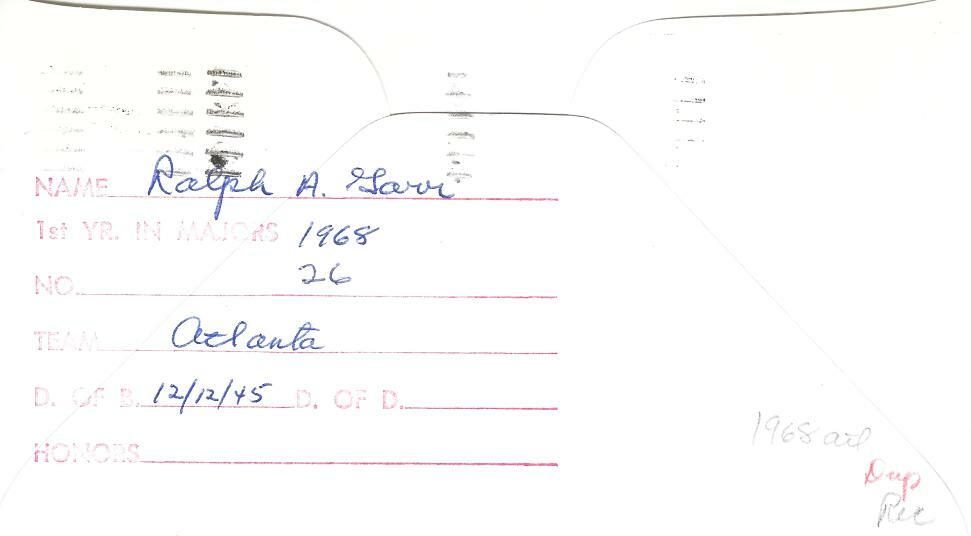 NAME Ralph A. Garr
1st YR. IN MAJORS 1968
NO. 26
TEAM Atlanta
D. OF B. 12/12/45 D. OF D.
HONORS
1968 atl
Dup
Rec